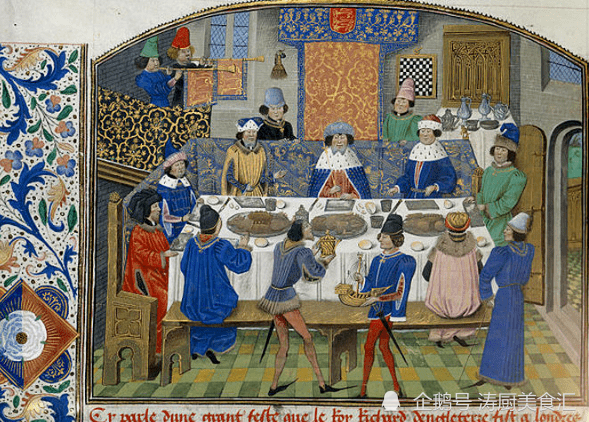 Cy parle dune grant feste que le Roy Richard dengleterre fist a londres
企鹅号 涛厨美食汇